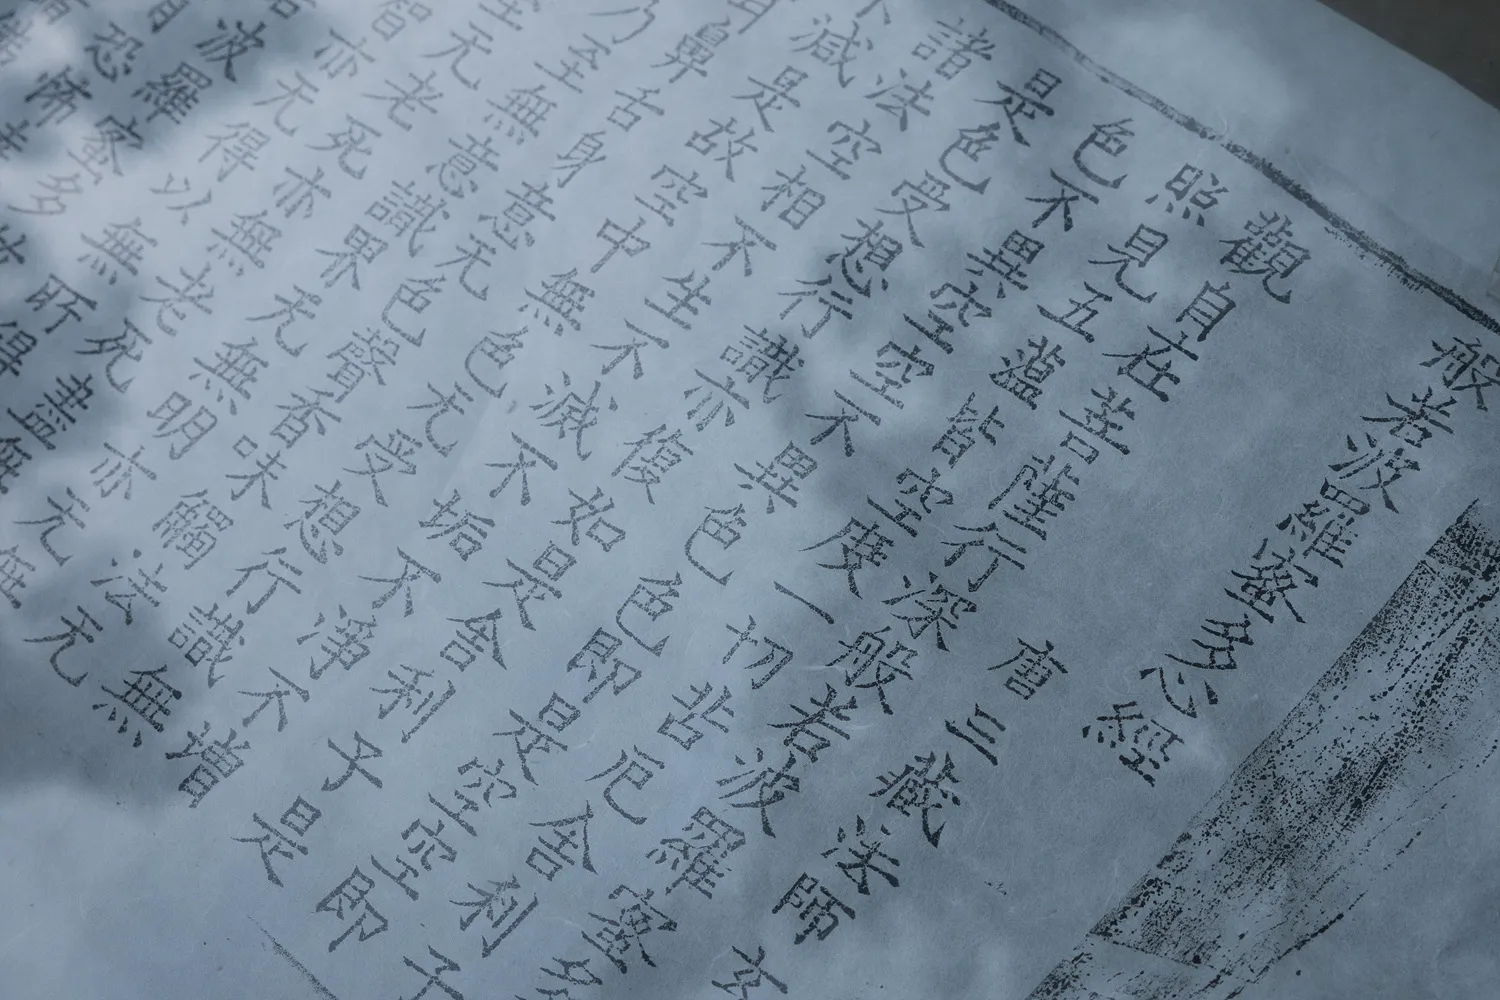 般若波羅蜜多心經
唐三藏法師玄
觀自在菩薩行深般若波羅蜜多
照見五蘊皆空度一切苦厄舍利子
色不異空空不異色色即是空空即
是色受想行識亦復如是舍利子是
諸法空相不生不滅不垢不淨不增
不減是故空中無色无受想行識無
耳鼻舌身意无色聲香味觸法无
乃至無意識界无無明亦无無
至无老死亦無老死盡無
智亦无得以無所得
波羅蜜多故
恐怖